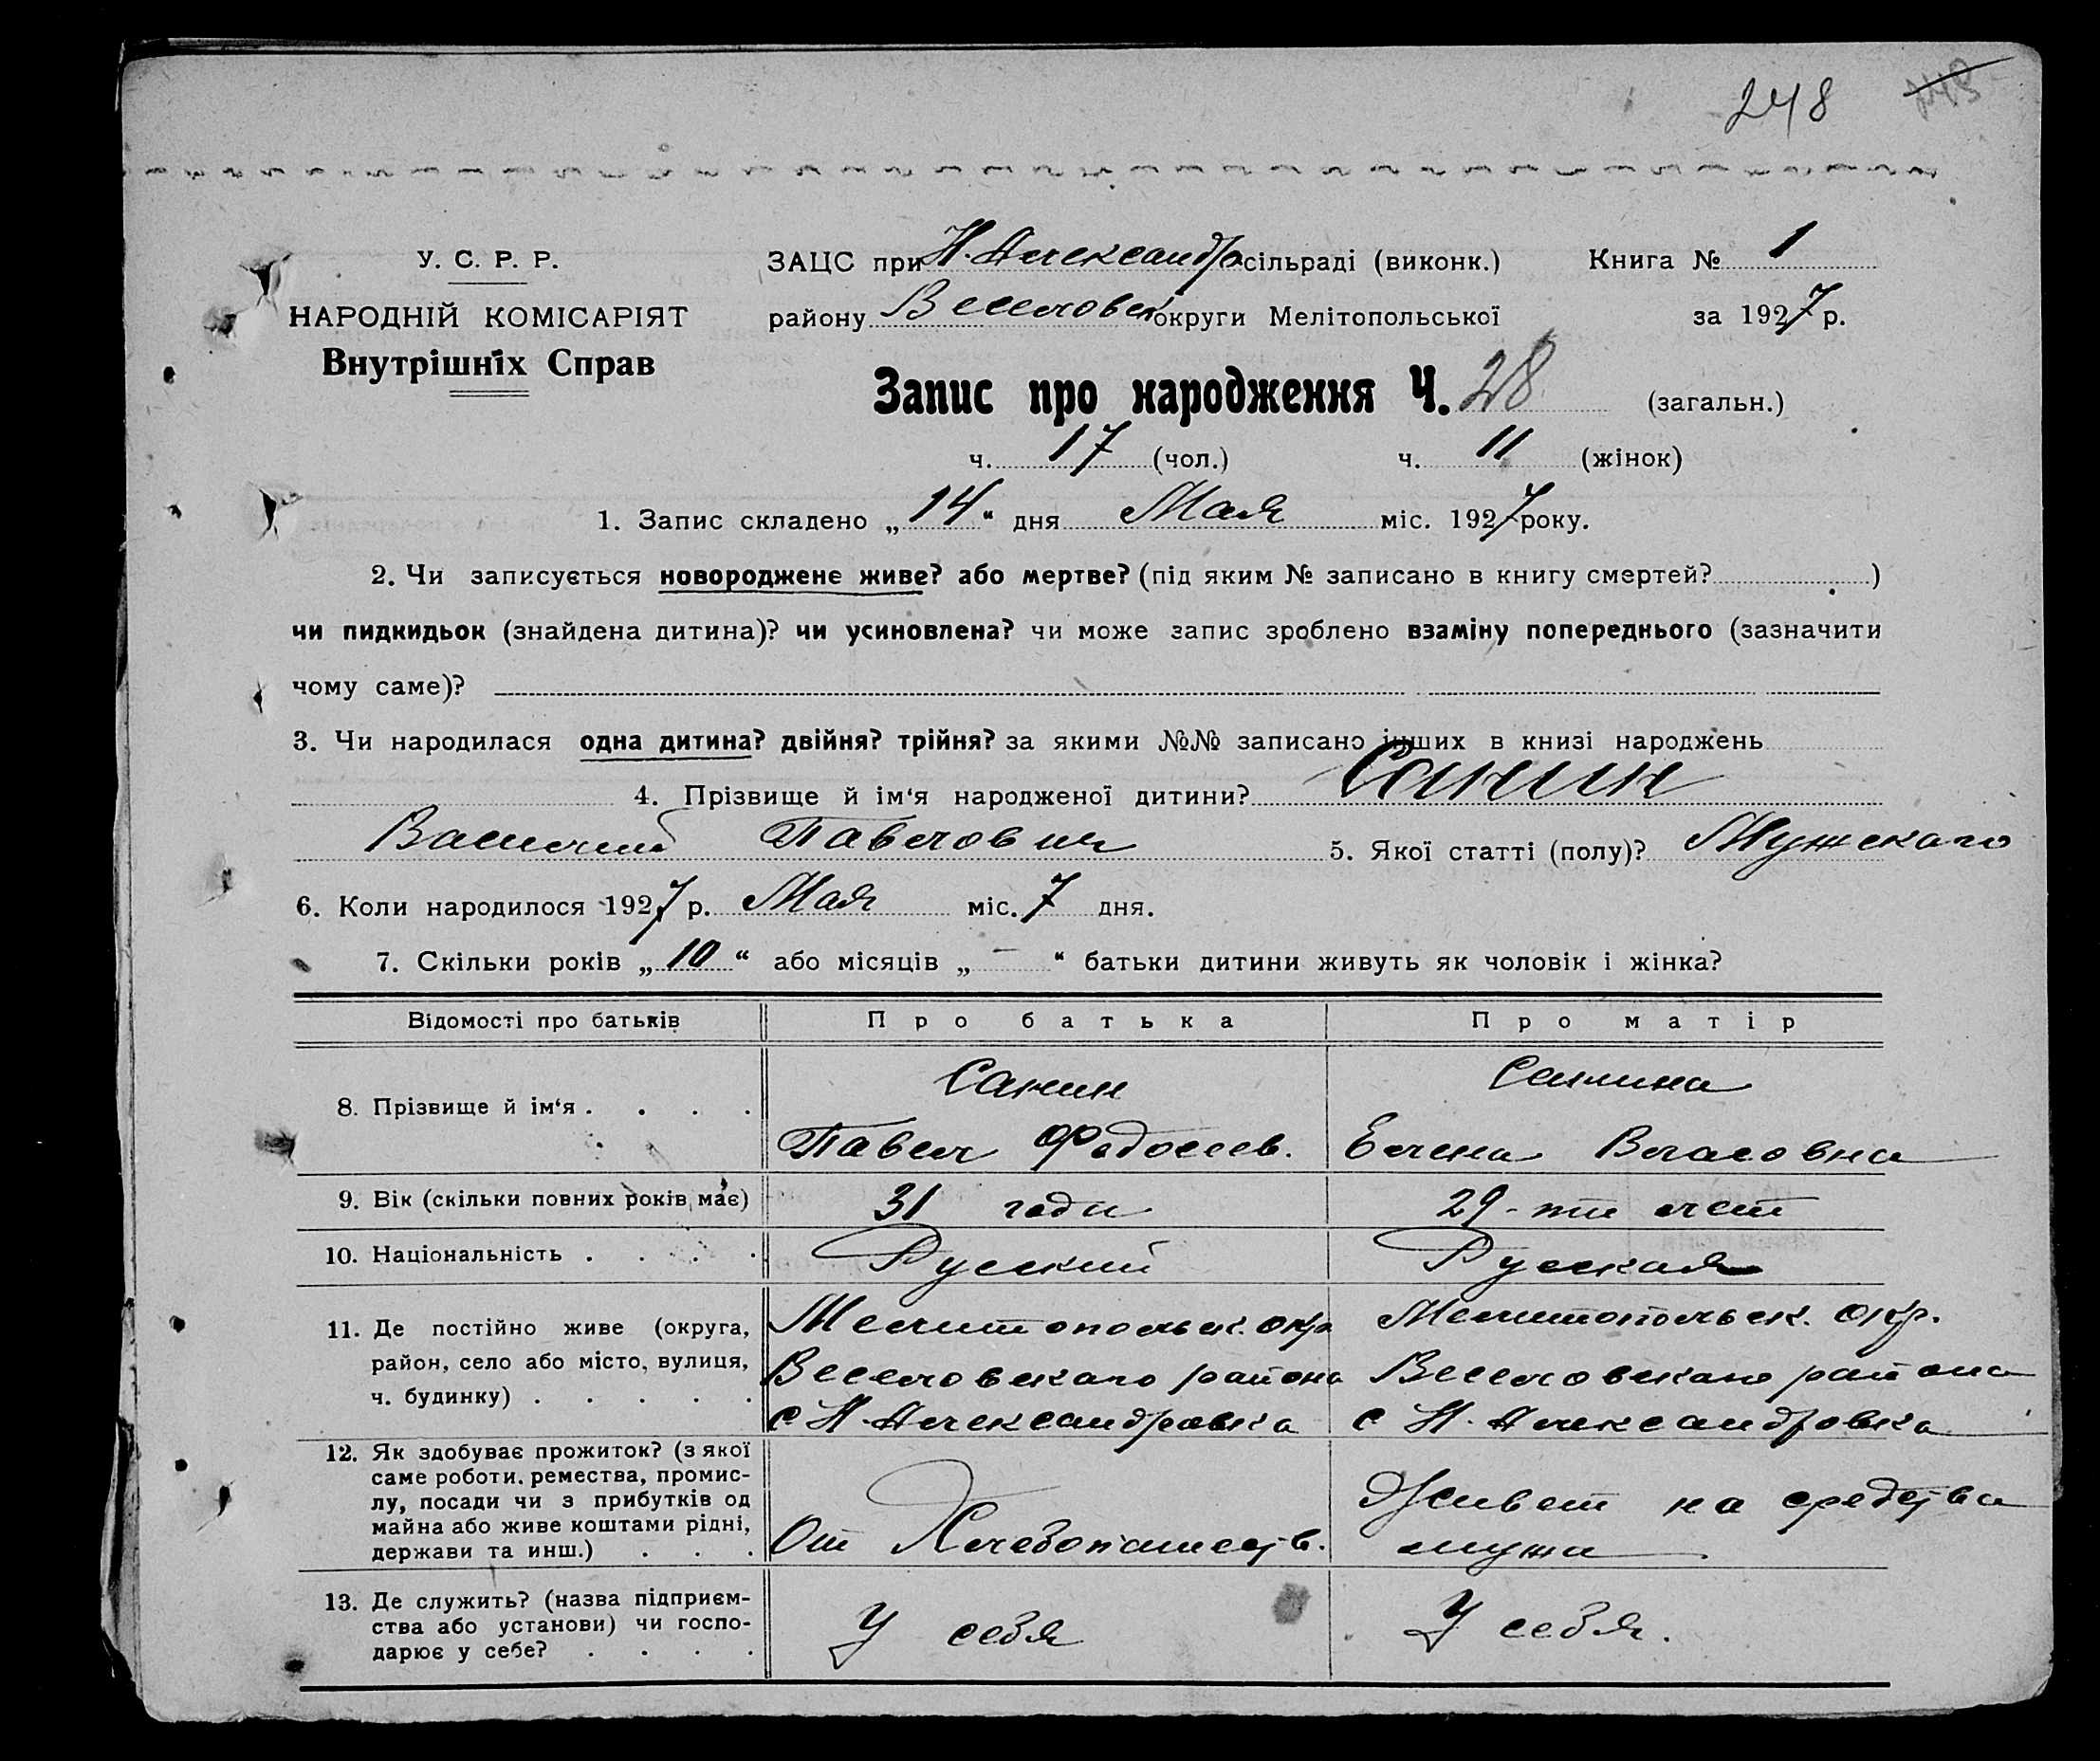 248
У. С. Р. Р.
НАРОДНІЙ КОМІСАРІЯТ
Внутрішніх Справ
ЗАЦС при Н. Александро сільраді (виконк.) Книга № 1
району Веселовск округи Мелітопольської за 1927 р.
Запис про народження Ч. 28 (загальн.)
ч. 17 (чол.) ч. 11 (жінок)
1. Запис складено „ 14 “ дня Мая міс. 1927 року.
2. Чи записується новороджене живе? або мертве? (під яким № записано в книгу смертей? )
чи пидкидьок (знайдена дитина)? чи усиновлена? чи може запис зроблено взаміну попереднього (зазначити
чому саме)?
3. Чи народилася одна дитина? двійня? трійня? за якими №№ записано інших в книзі народжень
4. Прізвище й ім‘я народженої дитини? Санин
Василий Павлович 5. Якої статті (полу)? Мужскаго
6. Коли народилося 1927 р. Мая міс. 7 дня.
7. Скільки років „ 10 “ або місяців „ — “ батьки дитини живуть як чоловік і жінка?
Відомості про батьків Про батька Про матір
8. Прізвище й ім‘я . . . . Санин Санина
Павел Федосеев. Елена Власовна
9. Вік (скільки повних років має) 31 года 29-ти лет
10. Національність . . . . Русский Руская
11. Де постійно живе (округа, Мелитопольск. окр Мелитопольск. окр.
район, село або місто, вулиця, Веселовскаго района Веселовскаго района
ч. будинку) . . . . . с Н. Александровка с Н. Александровка
12. Як здобуває прожиток? (з якої
саме роботи. ремества, промис-
лу, посади чи з прибутків од Живет на средства
майна або живе коштами рідні, От Хлебопашеств. мужа
держави та инш.) . . .
13. Де служить? (назва підприєм-
ства або установи) чи госпо- У себя У себя.
дарює у себе? . . . .